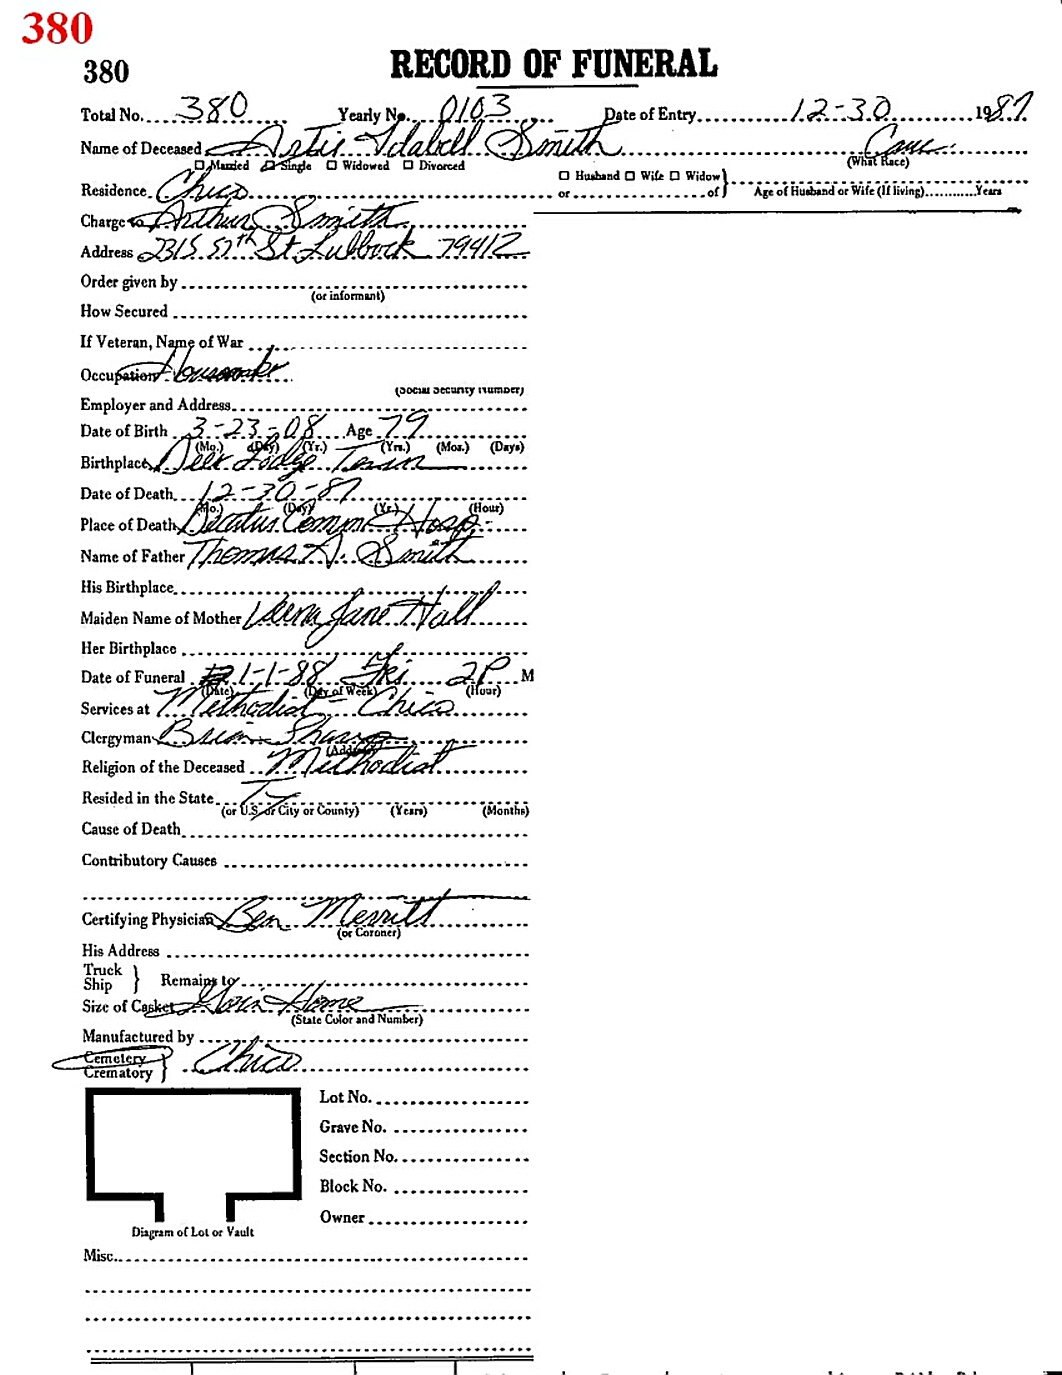 380
380 RECORD OF FUNERAL
Total No. 380 Yearly No. 0103 Date of Entry 12-30 1987
Name of Deceased Artis Idabell Smith Cauc.
(What Race)
☐ Married ☐ Single ☐ Widowed ☐ Divorced
☐ Husband ☐ Wife ☐ Widow }
Residence Chico or of } Age of Husband or Wife (If living) Years
Charge to Arthur Smith
Address 2315 57th St Lubbock 79412
Order given by
(or informant)
How Secured
If Veteran, Name of War
Occupation Housewife
(Social Security Number)
Employer and Address
Date of Birth 3-23-08 Age 79
(Mo.) (Day) (Yr.) (Yrs.) (Mos.) (Days)
Birthplace Deer Lodge Tenn
Date of Death 12-30-87
(Mo.) (Day) (Yr.) (Hour)
Place of Death Decatur Comm Hosp
Name of Father Thomas A. Smith
His Birthplace
Maiden Name of Mother Jane Hall
Her Birthplace
Date of Funeral 1-1-88 Fri 2P M
(Date) (Day of Week) (Hour)
Services at Methodist - Chico
Clergyman Brian
(Address)
Religion of the Deceased Methodist
Resided in the State Tx
(or U.S. or City or County) (Years) (Months)
Cause of Death
Contributory Causes
Certifying Physician Ben Merritt
(or Coroner)
His Address
Truck
Ship } Remains to
Size of Casket Home
(State Color and Number)
Manufactured by
Cemetery
Crematory } Chico
Lot No.
Grave No.
Section No.
Block No.
Owner
Diagram of Lot or Vault
Misc.